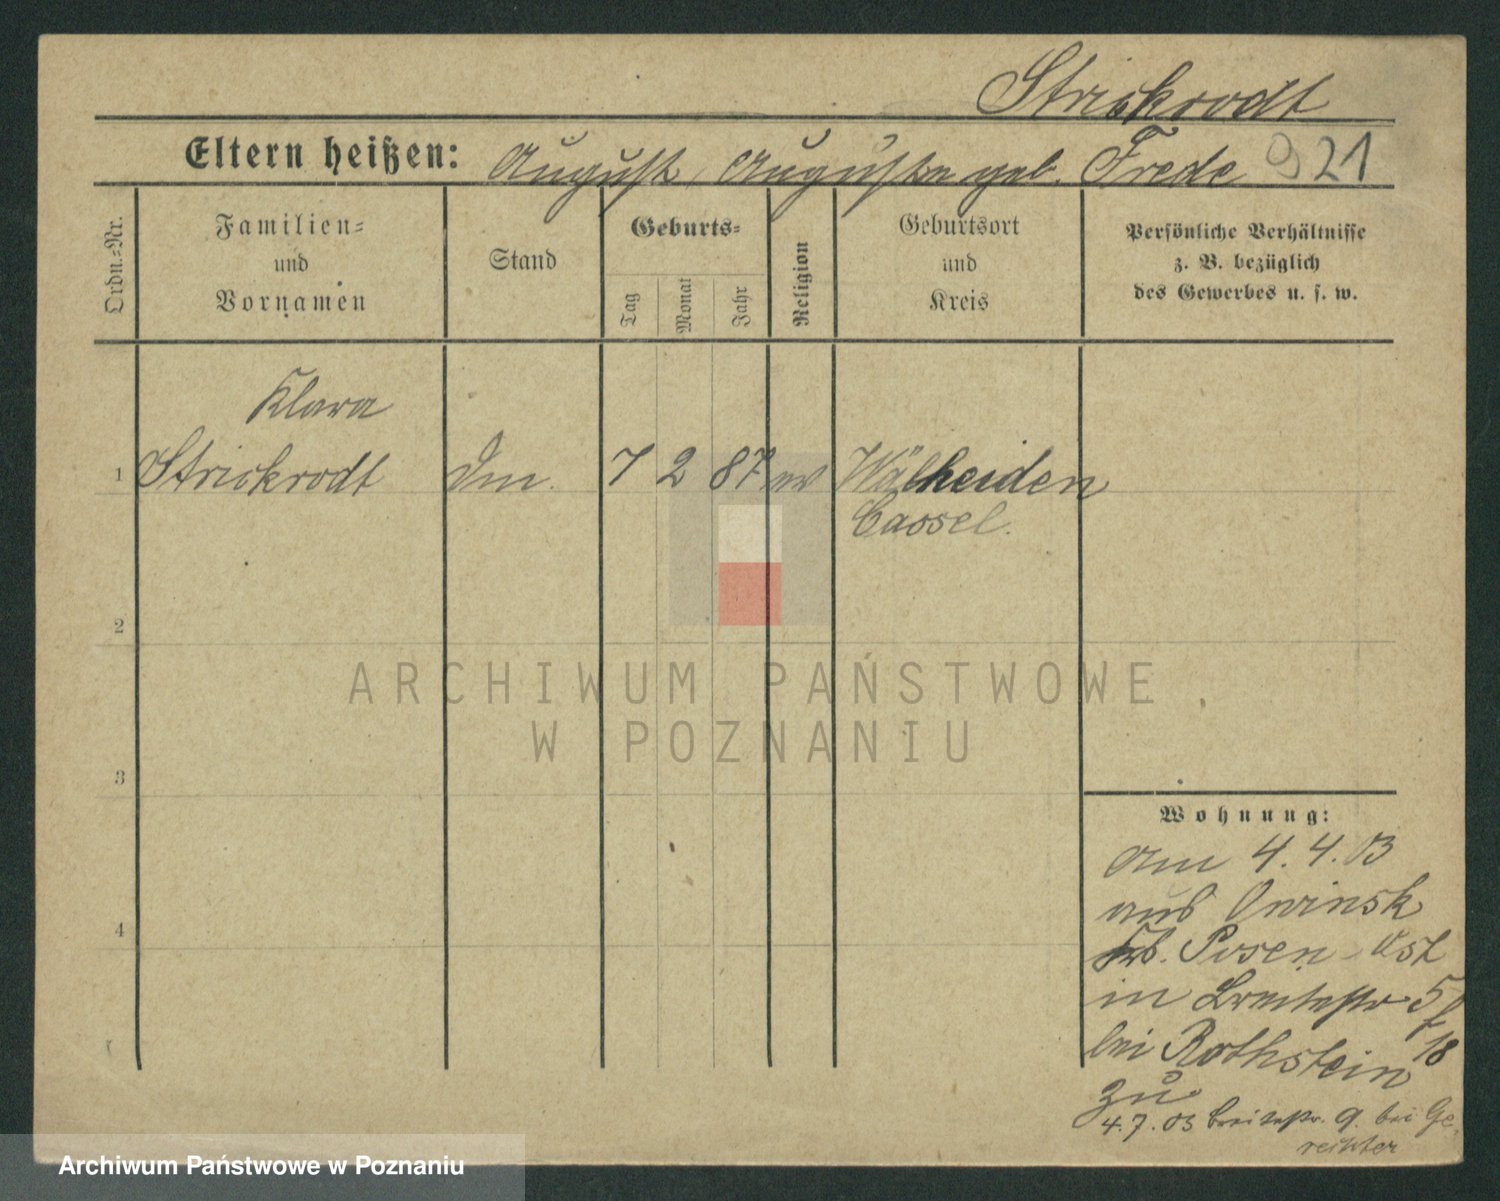 Strickrodt
Eltern heißen: August, Auguste geb. Frede 921
Ordn.-Nr.
Familien-
und
Vornamen
Stand
Geburts-
Tag
Monat
Jahr
Religion
Geburtsort
und
Kreis
Persönliche Verhältnisse
z. B. bezüglich
des Gewerbes u. s. w.
Klara
1 Strickrodt Dm. 7 2 87 ev Walheiden
Cassel.
2
ARCHIWUM PAŃSTWOWE
W POZNANIU
3
Wohnung:
Am 4.4.03
aus Owinsk
4
Posen Ost
in Breitestr 5
18
bei Rothstein
zu
4.7.03 Breitestr. 9. bei Ge
richter
Archiwum Państwowe w Poznaniu